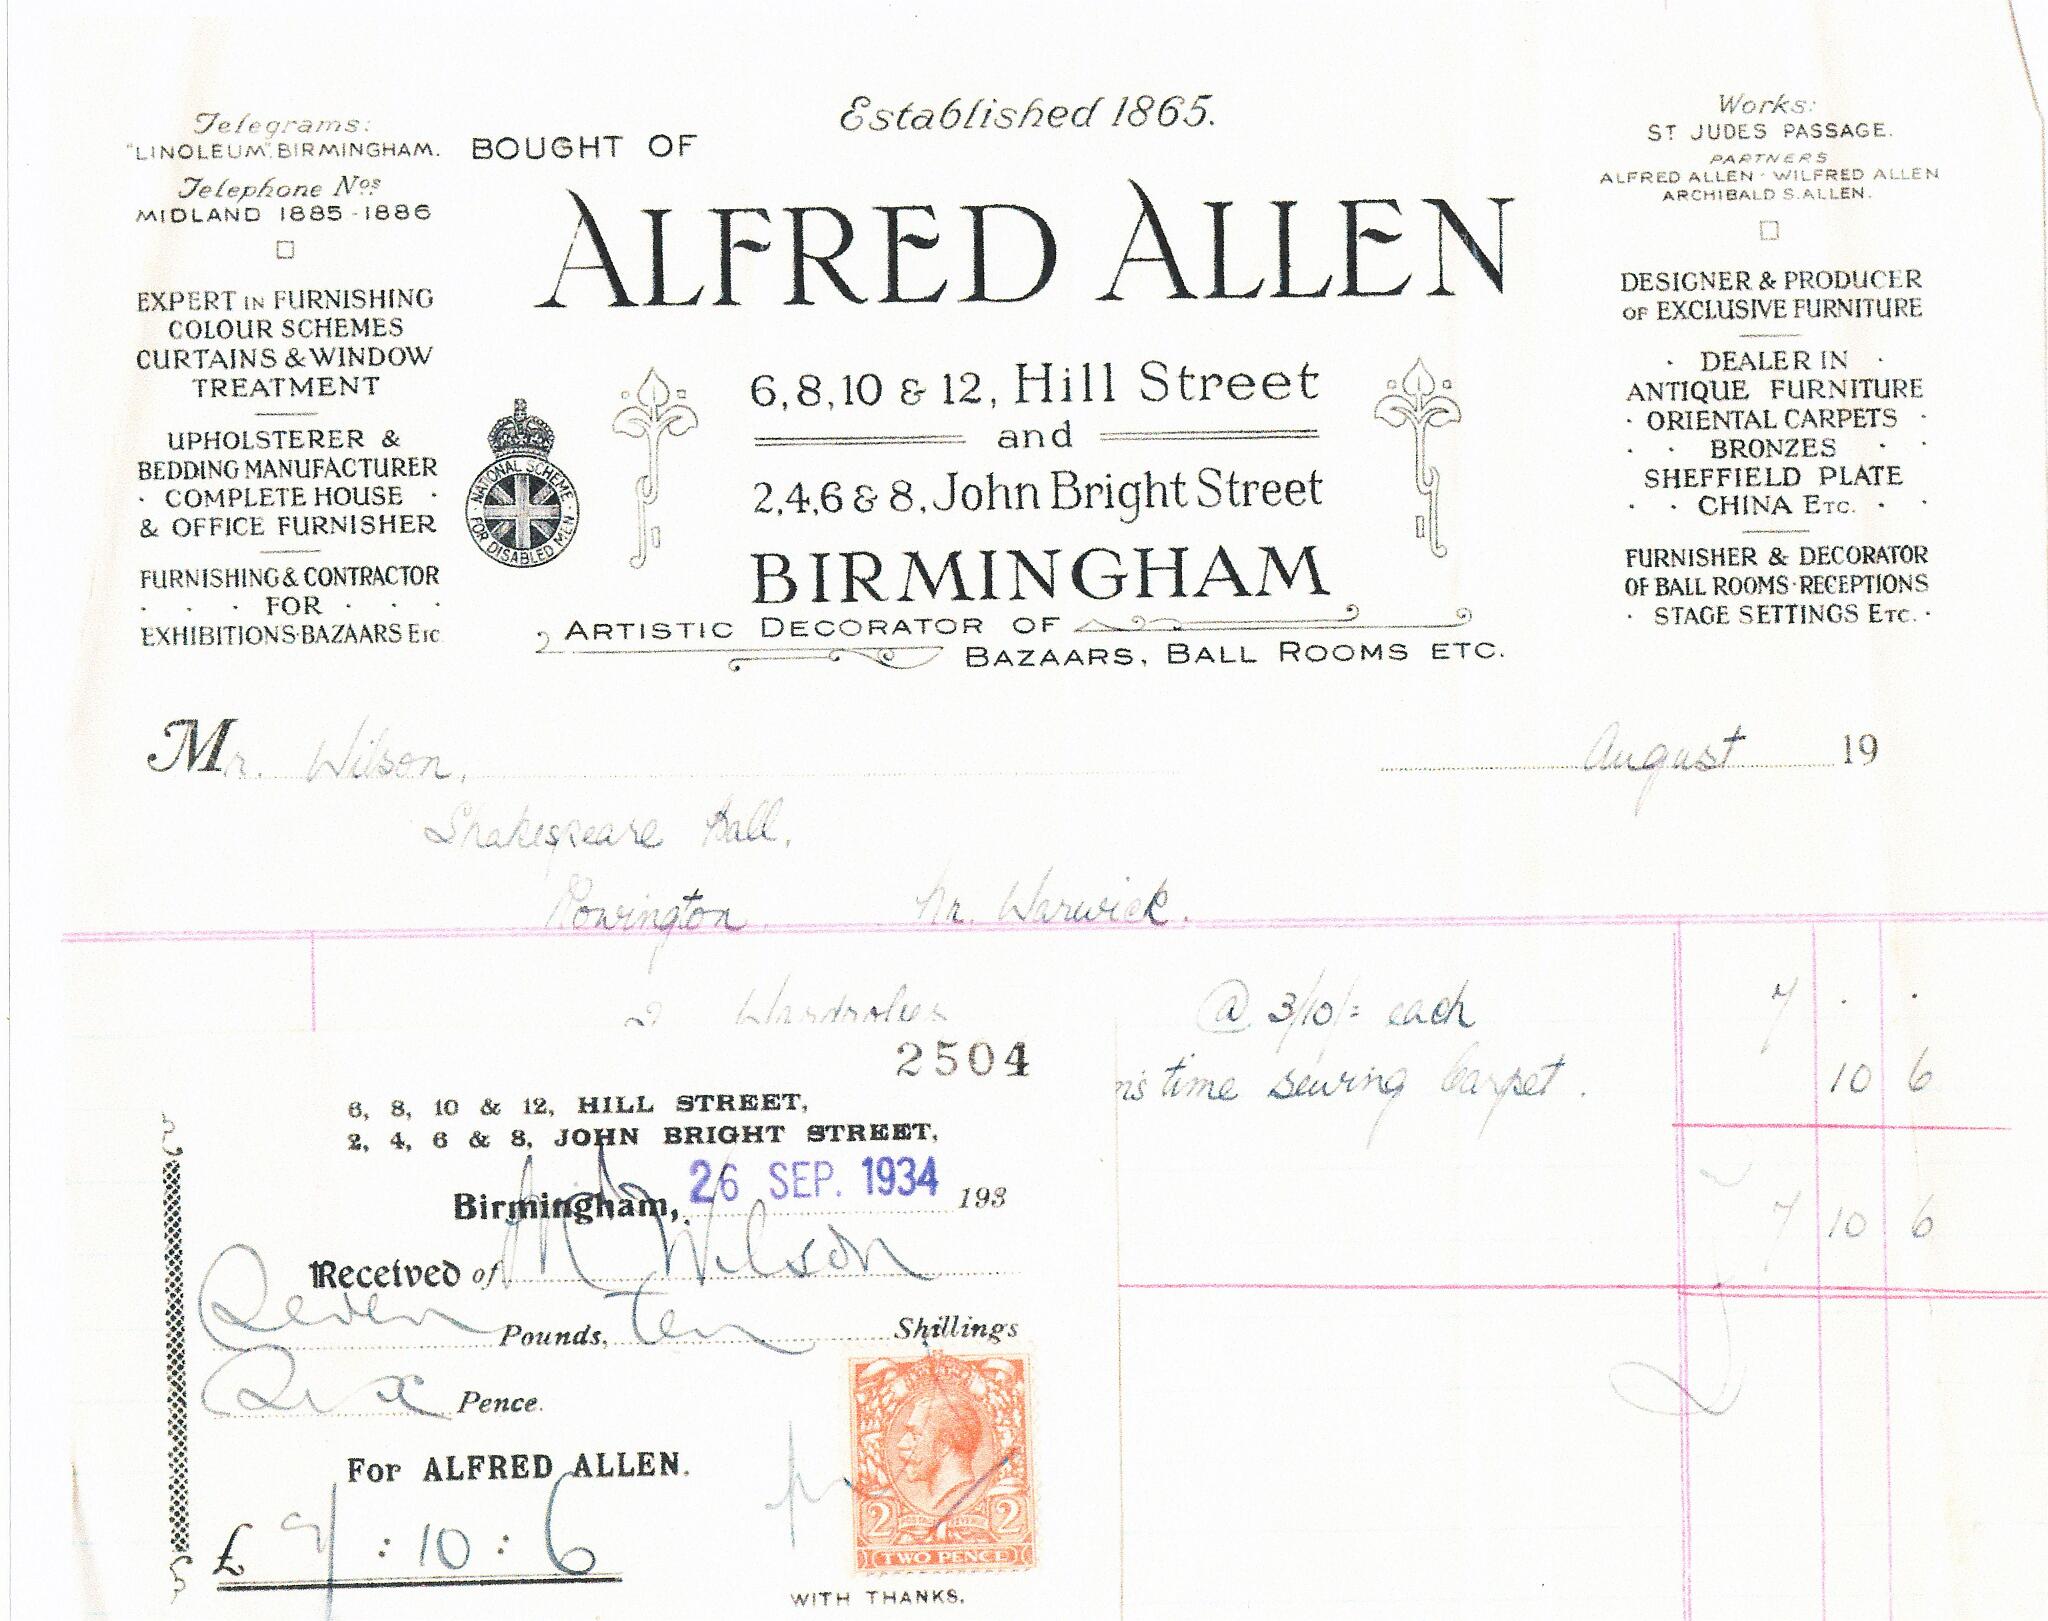 Established 1865.
Telegrams:
"LINOLEUM", BIRMINGHAM.
Telephone Nos
MIDLAND 1885-1886
EXPERT IN FURNISHING
COLOUR SCHEMES
CURTAINS & WINDOW
TREATMENT
UPHOLSTERER &
BEDDING MANUFACTURER
· COMPLETE HOUSE ·
& OFFICE FURNISHER
FURNISHING & CONTRACTOR
· · · FOR · · ·
EXHIBITIONS·BAZAARS Etc
BOUGHT OF
ALFRED ALLEN
6, 8, 10 & 12, Hill Street
and
2, 4, 6 & 8, John Bright Street
BIRMINGHAM
NATIONAL SCHEME
· FOR DISABLED MEN ·
ARTISTIC DECORATOR OF
BAZAARS, BALL ROOMS ETC.
Works:
ST JUDES PASSAGE.
PARTNERS
ALFRED ALLEN · WILFRED ALLEN
ARCHIBALD S. ALLEN.
DESIGNER & PRODUCER
OF EXCLUSIVE FURNITURE
· DEALER IN ·
ANTIQUE FURNITURE
· ORIENTAL CARPETS ·
· · BRONZES · ·
SHEFFIELD PLATE
· · CHINA ETC. · ·
FURNISHER & DECORATOR
OF BALL ROOMS·RECEPTIONS
· STAGE SETTINGS ETC. ·
Mr. Wilson, August 19
Shakespeare Hall,
Rowington. Nr. Warwick.
2 Wardrobes @ 3/10/= each 7 . .
n's time sewing Carpet. 10 6
7 10 6
2504
6, 8, 10 & 12, HILL STREET,
2, 4, 6 & 8, JOHN BRIGHT STREET,
Birmingham, 26 SEP. 1934 193
Received of Mr Wilson
Seven Pounds, Ten Shillings
Six Pence.
For ALFRED ALLEN.
£ 7 : 10 : 6
2 POSTAGE REVENUE 2
TWO PENCE
WITH THANKS.